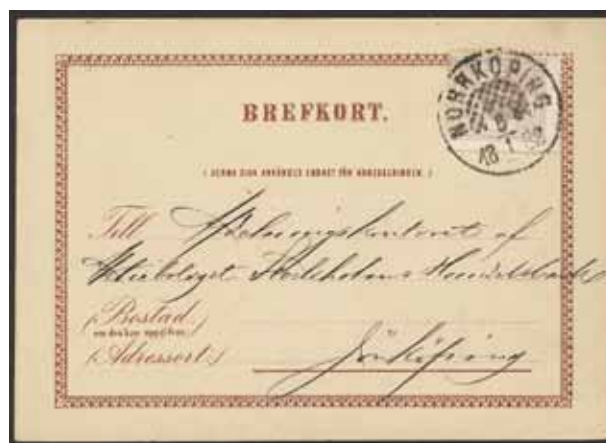 BREFKORT.
NORRKÖPING
( DENNA SIDA ANVÄNDES ENDAST FÖR ADRESSERINGEN. )
Till Afdelningskontoret af
Aktiebolaget Stockholms Handelsbank
(Bostad)
om den kan uppgifvas.
(Adressort:) Jönköping